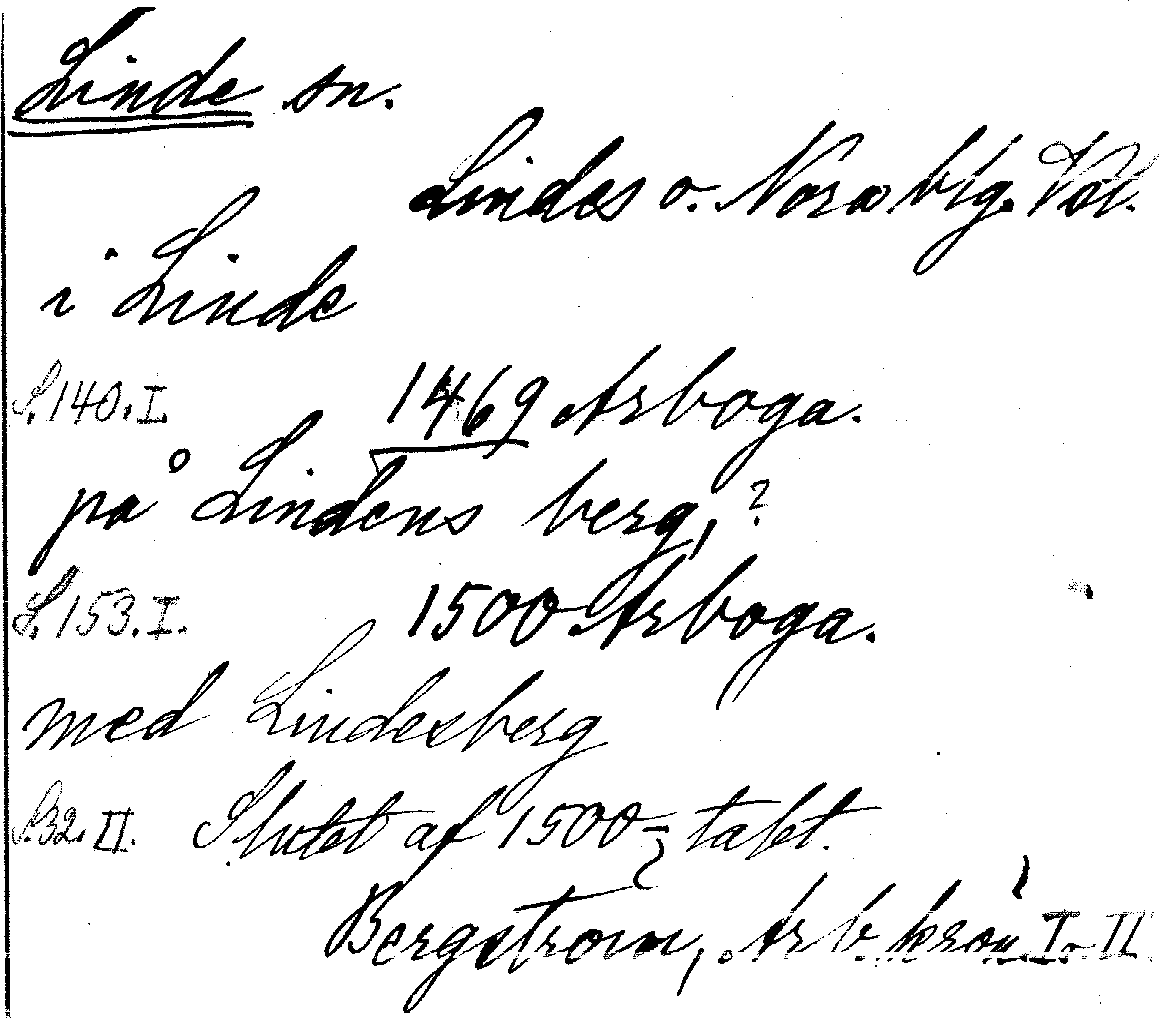 Linde sn.
Lindes o. Nora blg. Vstl.
i Linde
S. 140. I. 1469 Arboga.
på Lindens berg, ?
S. 153. I. 1500 Arboga.
med Lindesberg
S. 32. II. Slutet af 1500-talet.
Bergström, Arb. krön. I o. II.